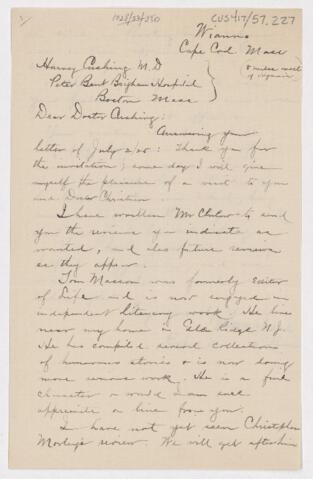 1925/23/250
CUS417/57.227
Wianno
Cape Cod Mass
8 miles west of Hyannis
Harvey Cushing M.D.
Peter Bent Brigham Hospital
Boston Mass
Dear Doctor Cushing:
Answering your
letter of July 2/25: Thank you for
the invitation; some day I will give
myself the pleasure of a visit to you
and Doctor Christian.
I have written Mr to send
you the reviews you indicate as
wanted, and also future reviews
as they appear.
Tom Masson was formerly Editor
of Life and is now engaged in
independent literary work. He lives
near my home in Glen Ridge N.J.
He has compiled several collections
of humorous stories & is now doing
more serious work. He is a fine
character & would I am sure
appreciate a line from you.
I have not yet seen Christopher
Morley's review. We will get after him